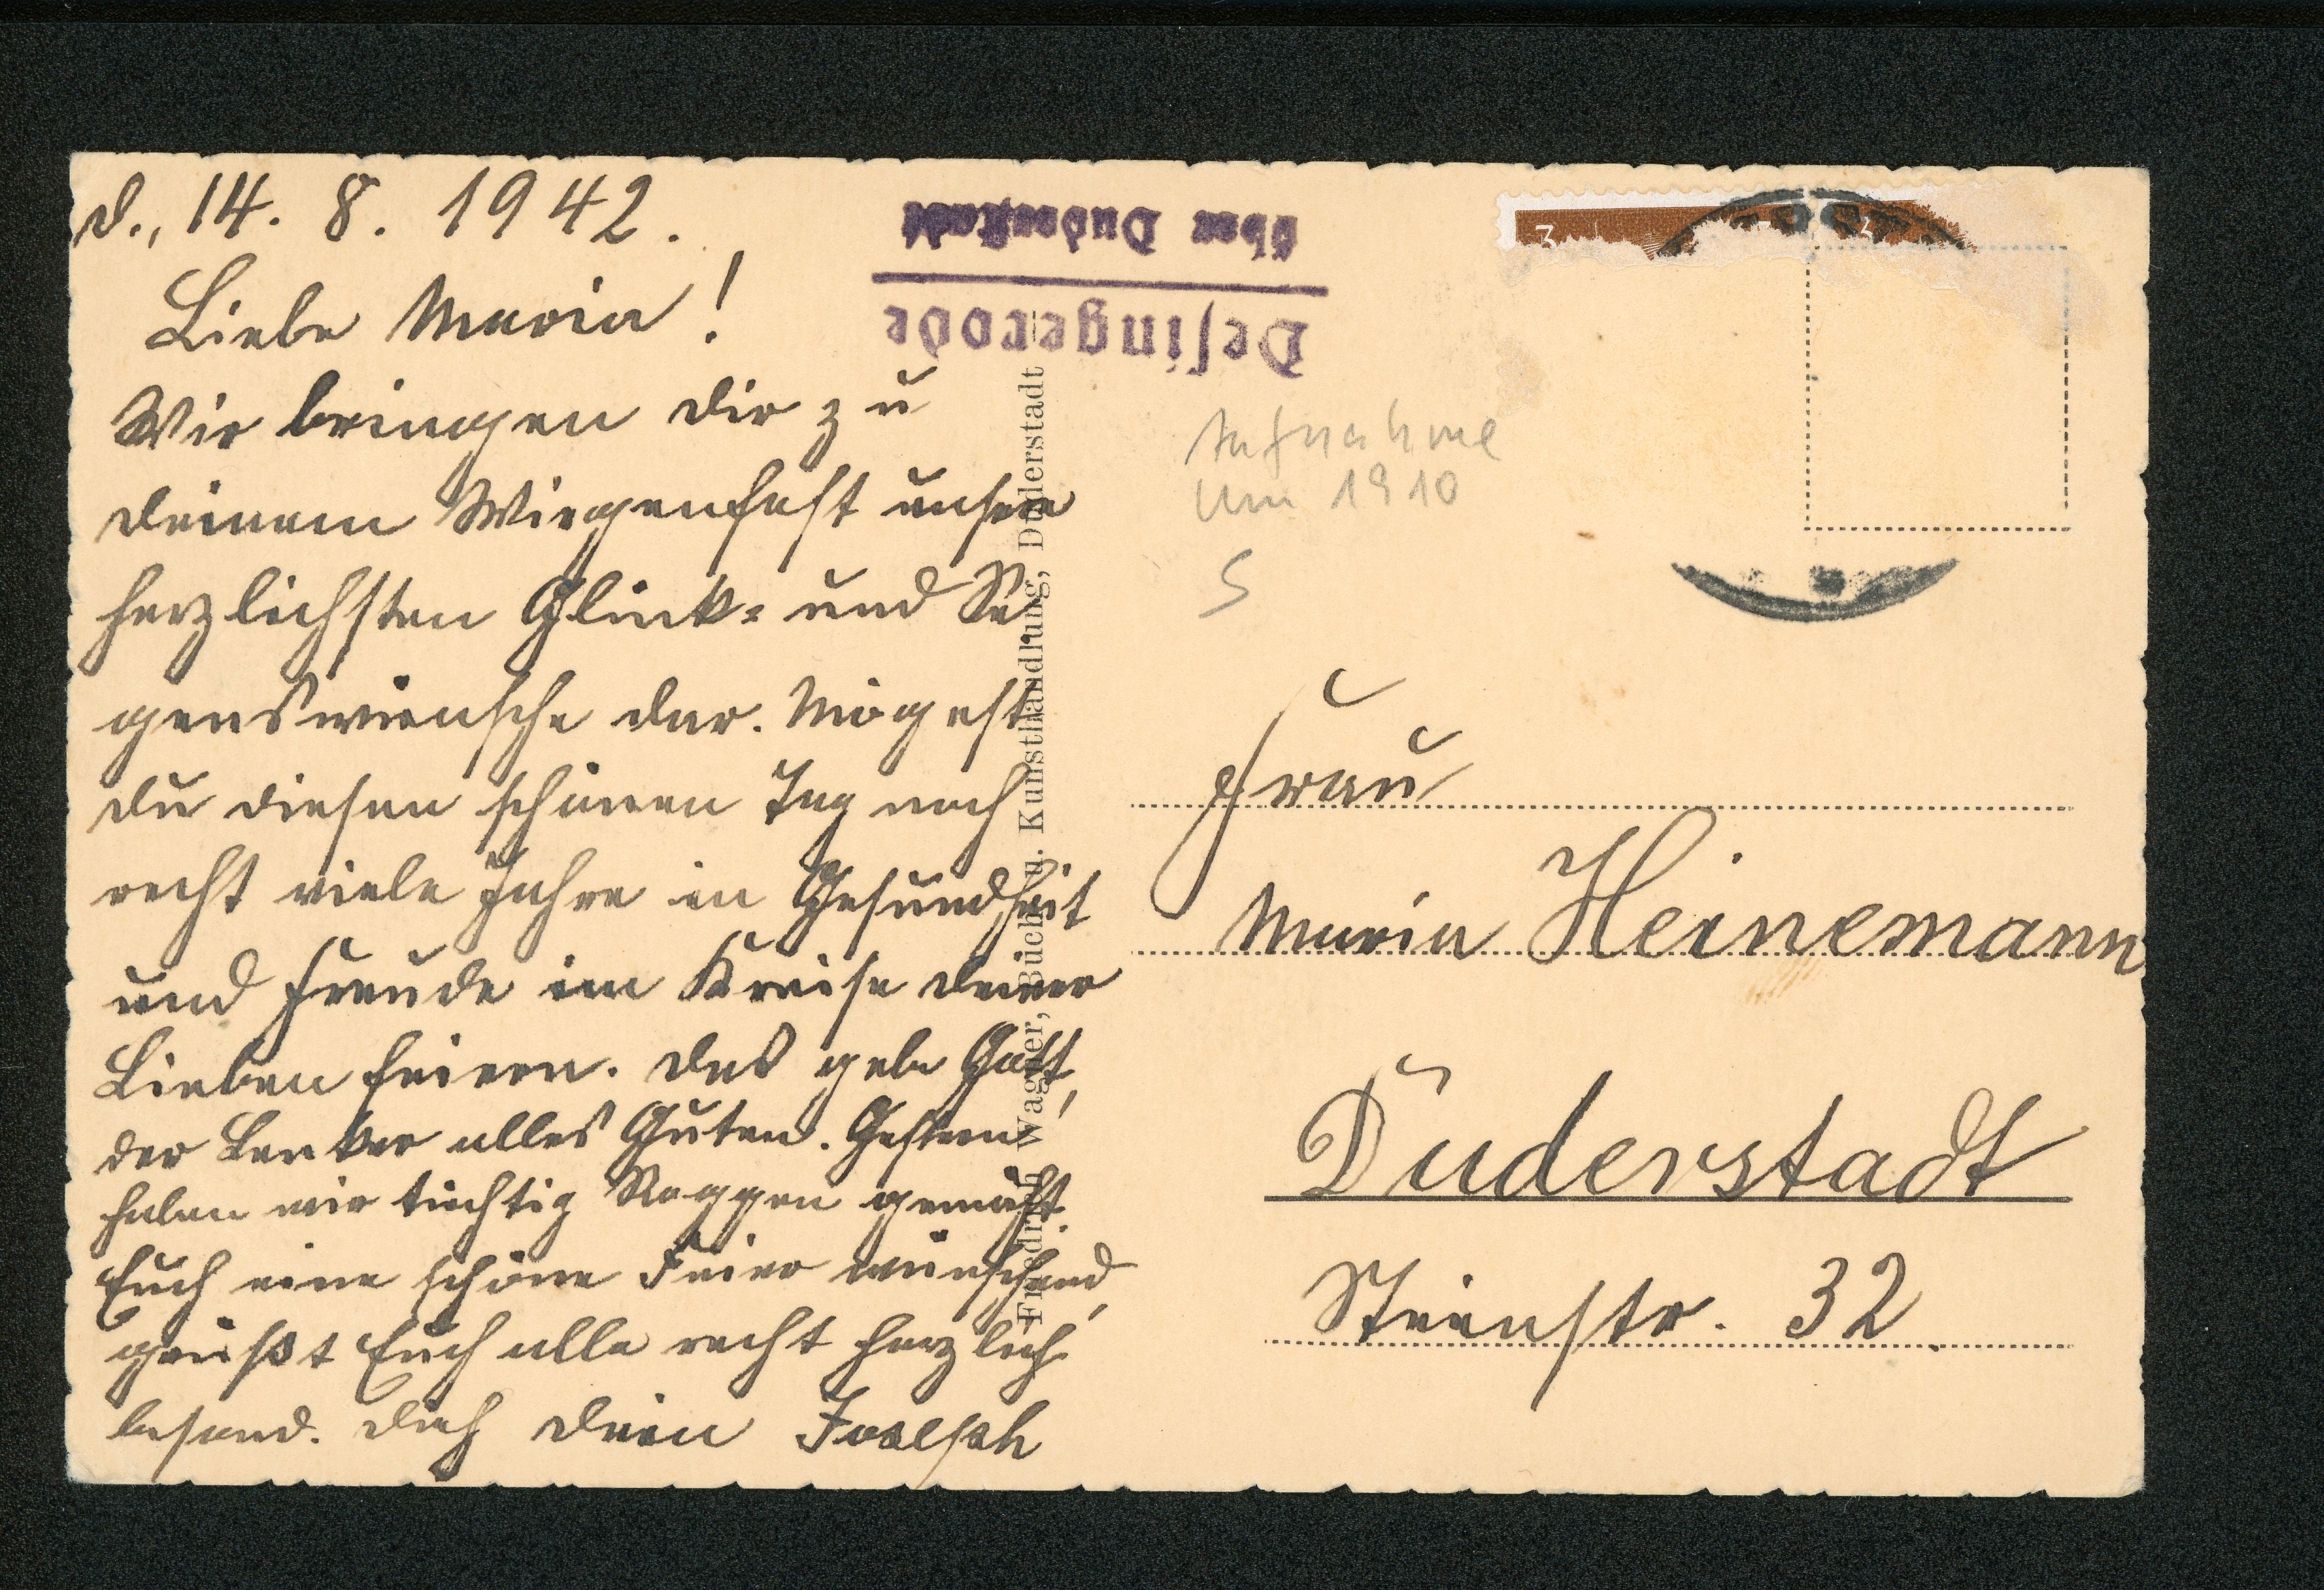 d., 14. 8. 1942.
Liebe Maria!
Wir bringen dir zu
deinem Wiegenfest unsere
herzlichsten Glück- und Se-
genswünsche dar. Mögest
du diesen schönen Tag noch
recht viele Jahre in Gesundheit
und Freude im Kreise deiner
Lieben feiern. Das gebe Gott,
der Lenker alles Guten. Gestern
haben wir tüchtig Roggen gemäht.
Euch eine schöne Feier wünschend,
grüßt Euch alle recht herzlich
besond. dich dein Joseph
Desingerode
über Duderstadt
Aufnahme
um 1910
S
3 3
Friedrich Wagner, Buch- u. Kunsthandlung, Duderstadt
Frau
Maria Heinemann
Duderstadt
Steinstr. 32